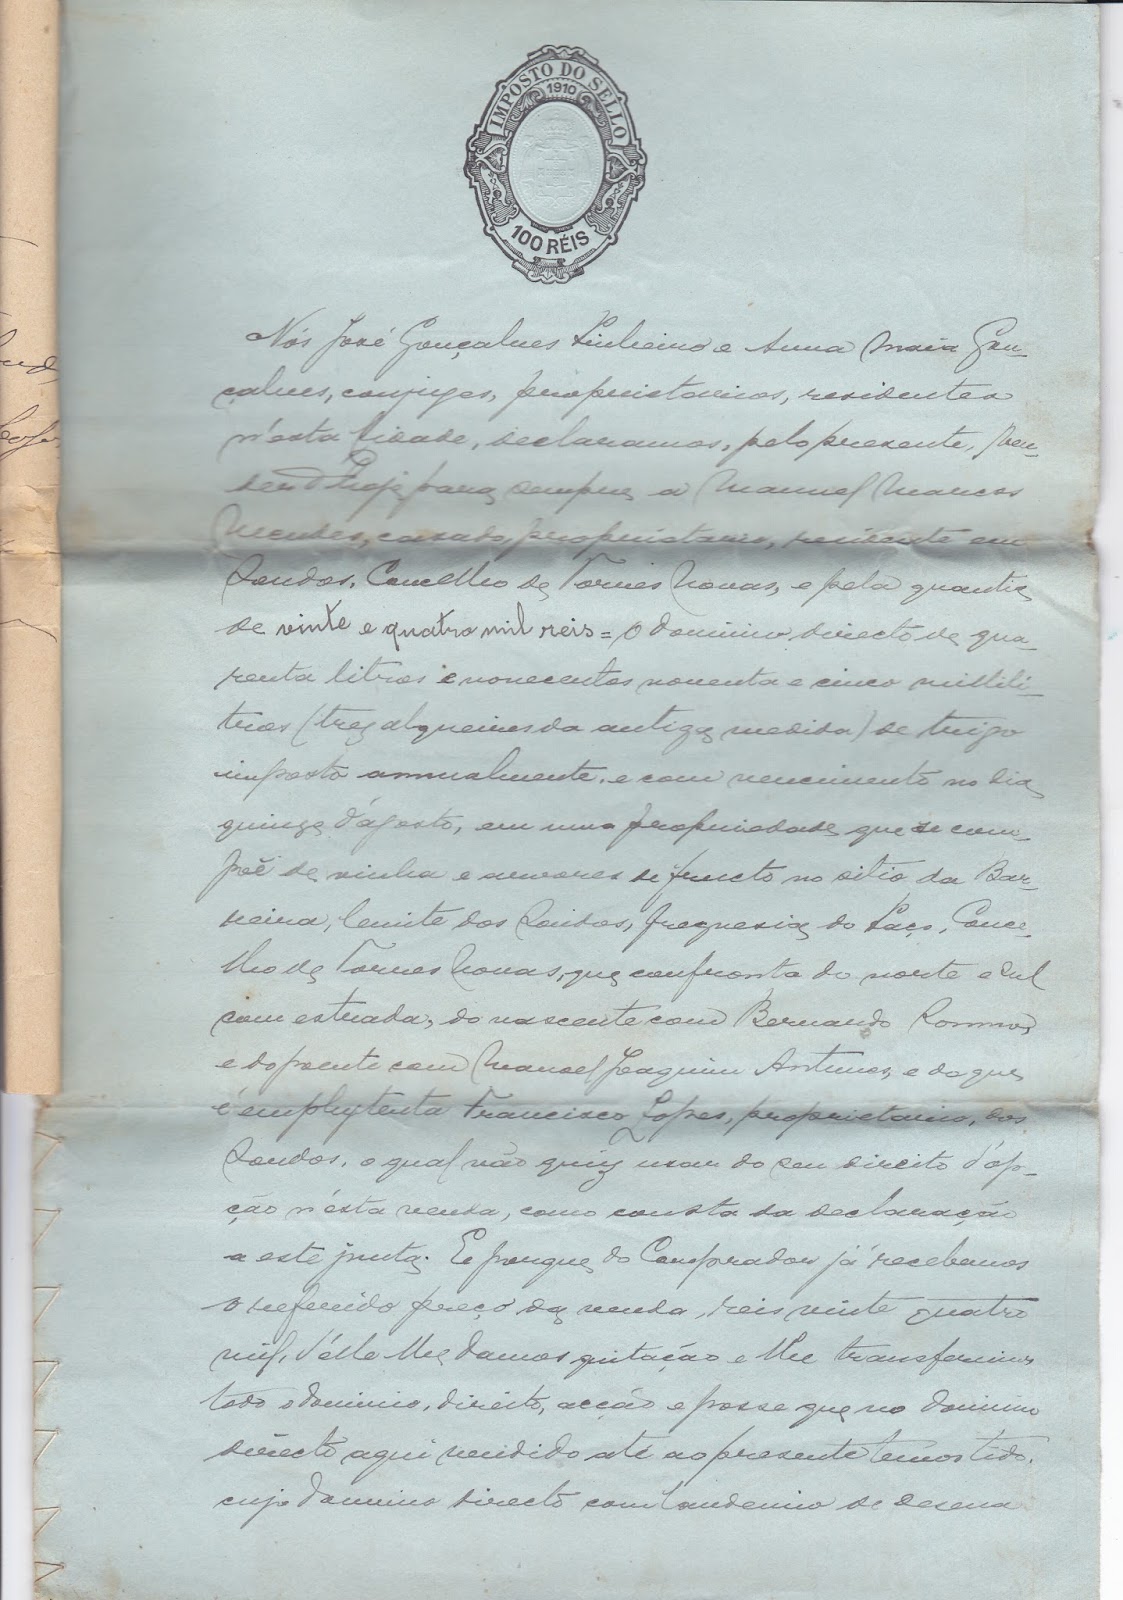 IMPOSTO DO SELLO
1910
100 RÉIS
Nós José Gonçalves Pinheiro e Anna Maria Gon-
çalves, conjuges, proprietarios, residentes
n'esta Cidade, declaramos, pelo presente, ven-
der d'hoje para sempre a Manuel Marcos
Mendes, casado, proprietario, residente em
Soudos, Concelho de Torres Novas, e pela quantia
de vinte e quatro mil reis = o dominio directo de qua-
renta litros e novecentos noventa e cinco millili-
tros (trez alqueires da antiga medida) de trigo
imposto annualmente, e com vencimento no dia
quinze d'agosto, em uma propriedade que se com-
põe de vinha e arvores de fructo no sitio da Bar-
reira, limite dos Soudos, freguezia do Paço, Conce-
lho de Torres Novas, que confronta do norte e sul
com estrada, do nascente com Bernardo
e do poente com Manoel Joaquim Antunes, e do que
é emphyteuta Francisco Lopes, proprietario, dos
Soudos, o qual não quiz usar do seu direito d'op-
ção n'esta venda, como consta da declaração
a este junta. E porque do Comprador já recebemos
o referido preço da venda, reis vinte quatro
mil, d'elle lhe damos quitação e lhe transferimos
todo o dominio, direito, acção e posse que no dominio
directo aqui vendido até ao presente temos tido,
cujo dominio directo com laudemio de dezena